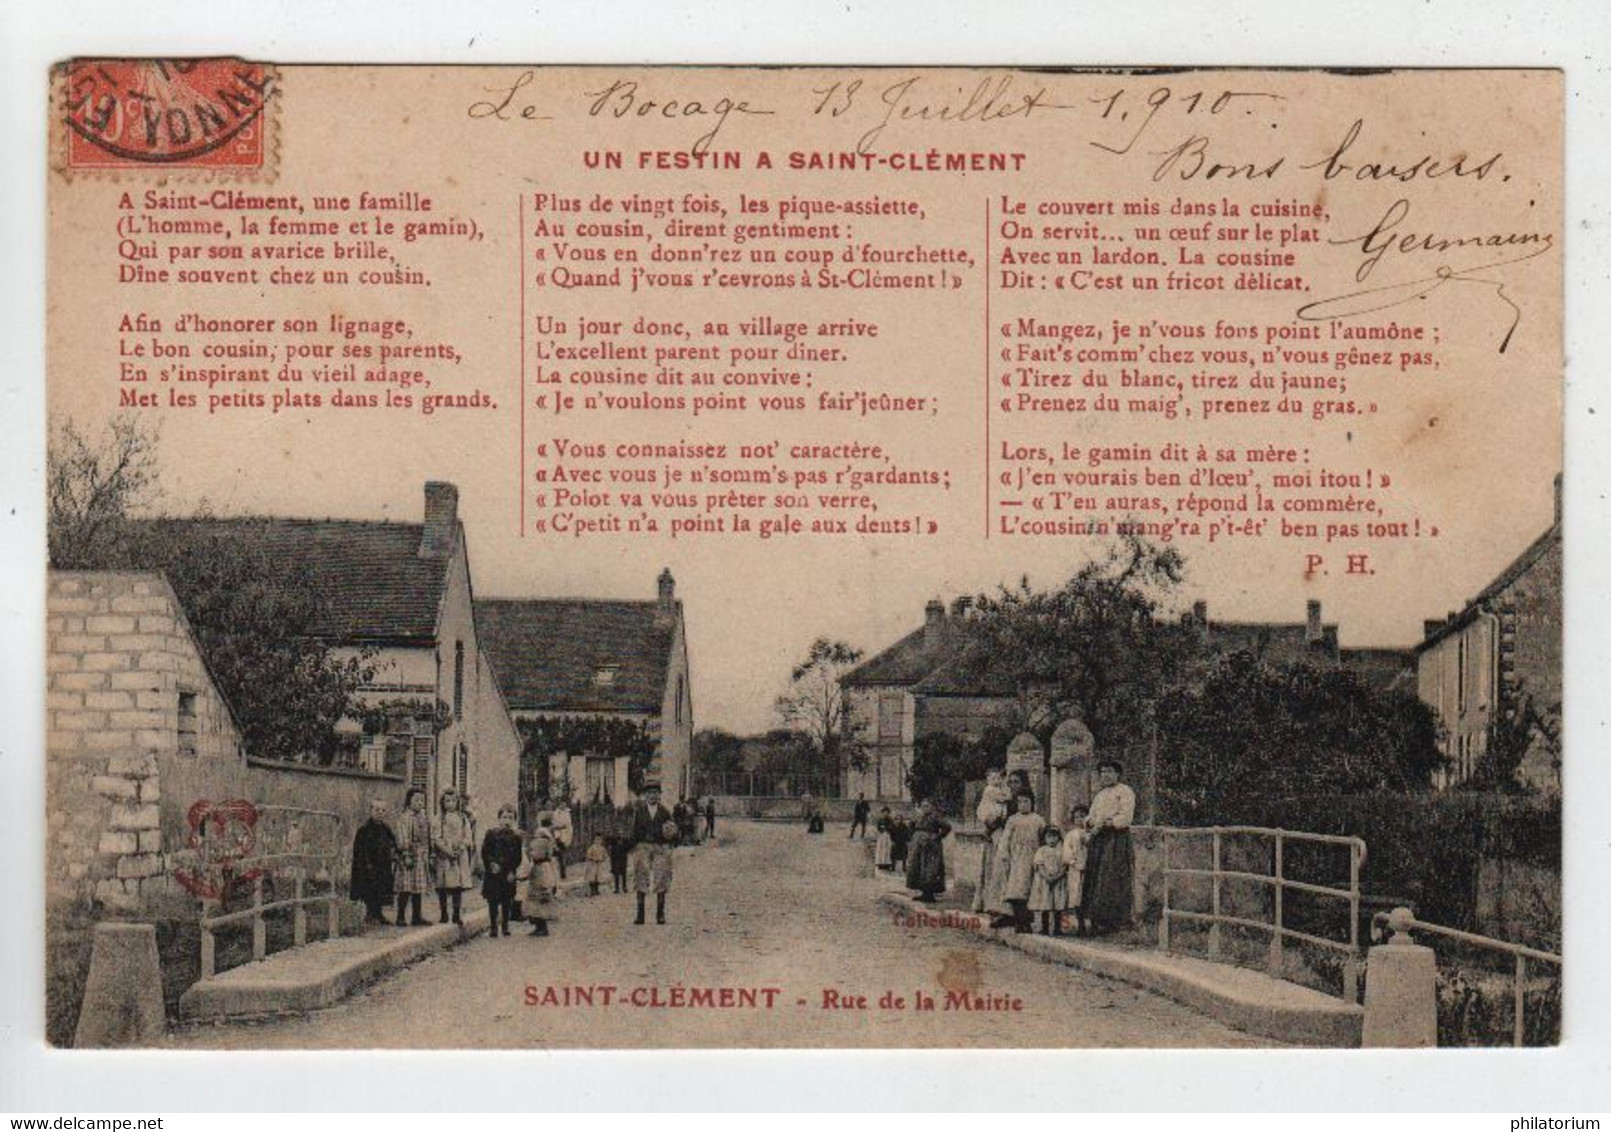 YONNE
10c
Le Bocage 13 Juillet 1.910.
Bons baisers.
Germaine
UN FESTIN A SAINT-CLÉMENT
A Saint-Clément, une famille
(L'homme, la femme et le gamin),
Qui par son avarice brille,
Dîne souvent chez un cousin.
Afin d'honorer son lignage,
Le bon cousin, pour ses parents,
En s'inspirant du vieil adage,
Met les petits plats dans les grands.
Plus de vingt fois, les pique-assiette,
Au cousin, dirent gentiment :
« Vous en donn'rez un coup d'fourchette,
« Quand j'vous r'cevrons à St-Clément ! »
Un jour donc, au village arrive
L'excellent parent pour dîner.
La cousine dit au convive :
« Je n'voulons point vous fair'jeûner ;
« Vous connaissez not' caractère,
« Avec vous je n'somm's pas r'gardants ;
« Polot va vous prêter son verre,
« C'petit n'a point la gale aux dents ! »
Le couvert mis dans la cuisine,
On servit... un œuf sur le plat
Avec un lardon. La cousine
Dit : « C'est un fricot délicat.
« Mangez, je n'vous fons point l'aumône ;
« Fait's comm' chez vous, n'vous gênez pas,
« Tirez du blanc, tirez du jaune;
« Prenez du maig', prenez du gras. »
Lors, le gamin dit à sa mère :
« J'en vourais ben d'lœu', moi itou ! »
— « T'en auras, répond la commère,
L'cousin n'mang'ra p't-êt' ben pas tout ! »
P. H.
Collection
SAINT-CLÉMENT - Rue de la Mairie
philatorium